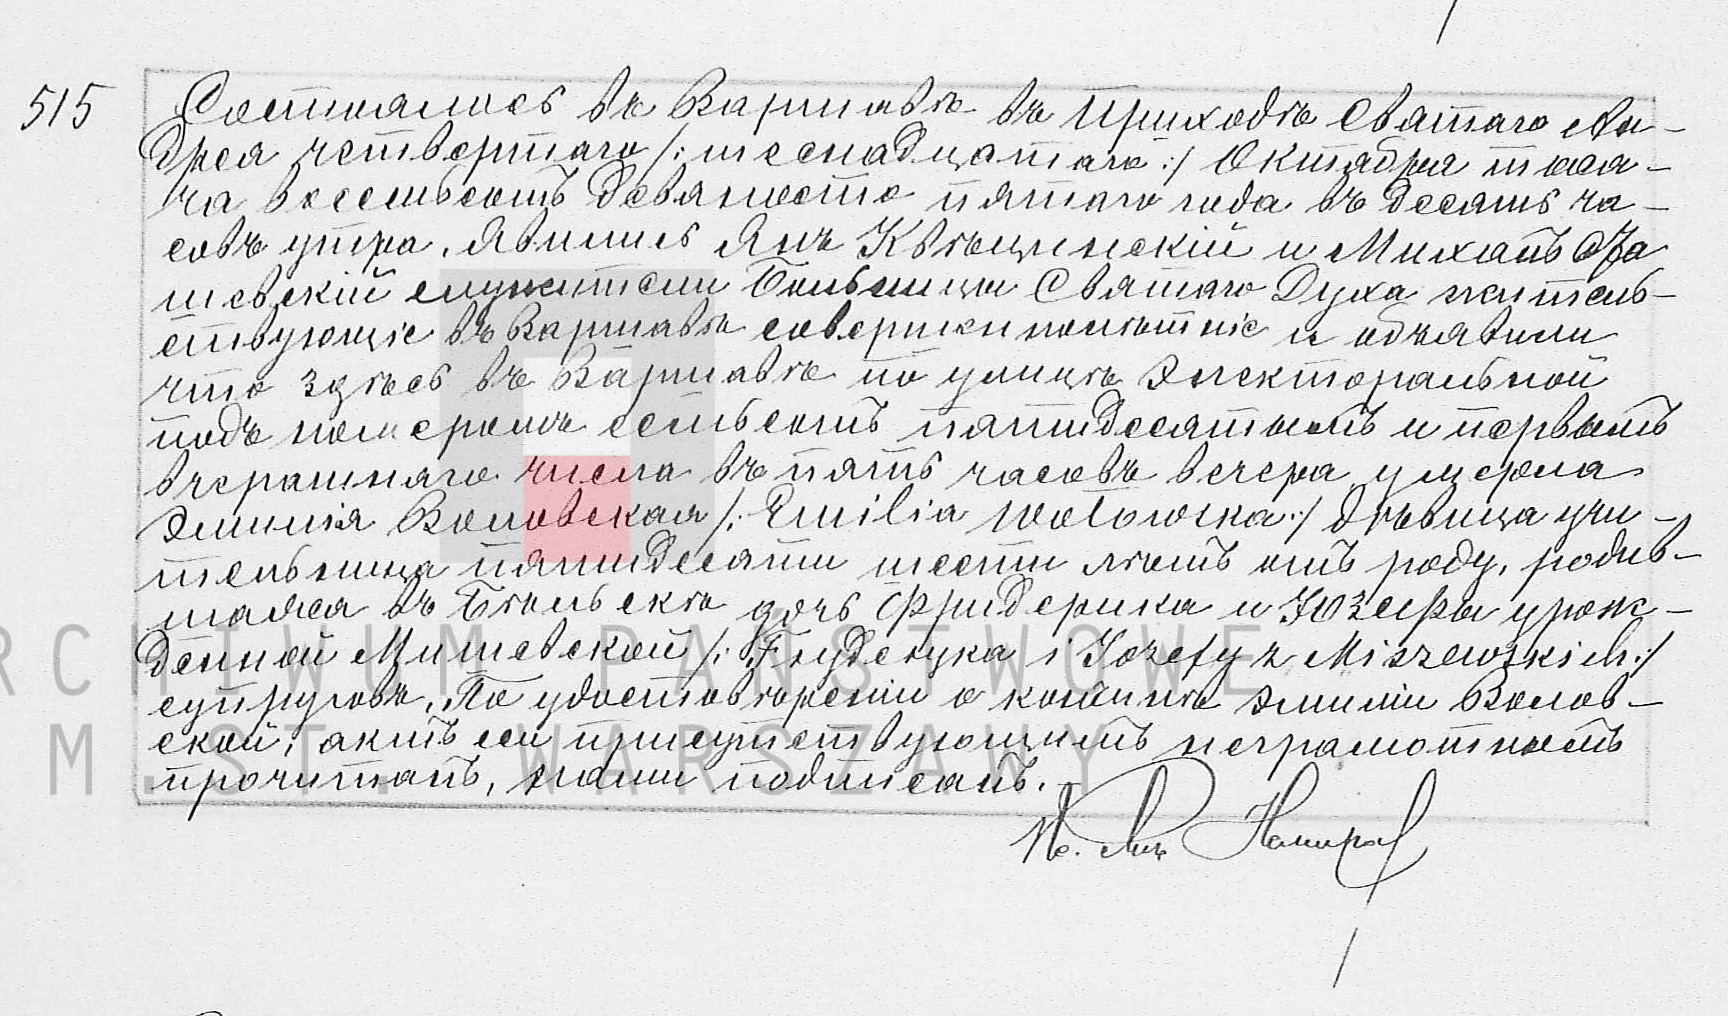 515
Состоялось въ Варшавѣ въ Приходѣ Святаго Ан-
дрея четвертаго /:шеснадцатаго:/ Октября тыся-
ча восемьсотъ девяносто пятаго года въ десять ча-
совъ утра. Явились Янъ и Михаилъ
шевскій служители Больницы Святаго Духа житель-
ствующіе въ Варшавѣ совершеннолѣтніе и объявили
что здѣсь въ Варшавѣ по улицѣ Электоральной
подъ номеромъ семьсотъ пятидесятымъ и первымъ
вчерашняго числа въ пять часовъ вечера умерла
Эмилія Воловская /:Emilia Wołowska:/ дѣвица учи-
тельница пятидесяти шести лѣтъ отъ роду, родив-
шаяся въ Бѣльскѣ дочь Фридерика и Юзефы урож-
денной Мишевской /:Fryderyka i Józefy z Miszewskich:/
супруговъ. По удостовѣреніи о кончинѣ Эмиліи Волов-
ской, актъ сей присутствующимъ неграмотнымъ
прочитанъ, нами подписанъ.
ARCHIWUM PAŃSTWOWE
M.ST. WARSZAWY